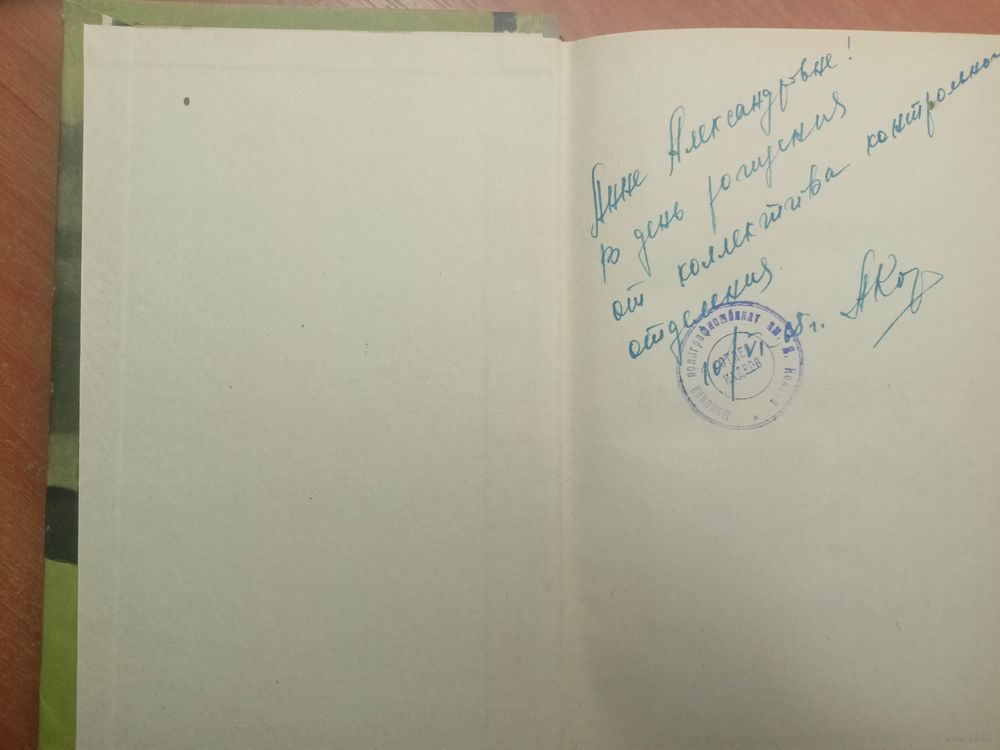 Анне Александровне!
в день рождения
от коллектива контрольно
отделения
10/VI 68 г. АКо
Минский полиграфкомбинат им. Я. Кол
ОТДЕЛ
КАДРОВ